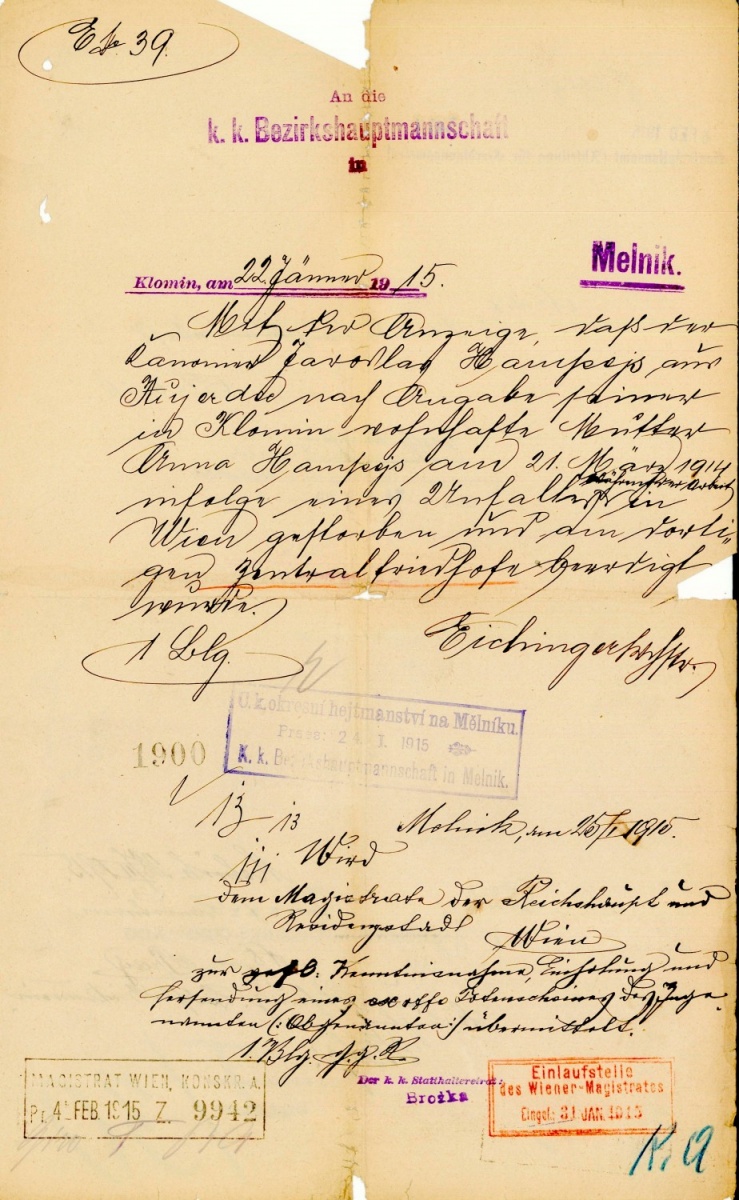 E No 39.
An die
k. k. Bezirkshauptmannschaft
in
Melnik.
Klomin, am 22. Jänner 1915.
Mit der Anzeige, daß der
Kanonier Jaroslav Hampejs aus
Aujezdec nach Angabe seiner
in Klomin wohnhafte Mutter
Anna Hampejs am 21. März 1914
während der Arbeit
infolge eines Unfalles in
Wien gestorben und am dorti-
gen Zentralfriedhofe beerdigt
wurde.
1 Blg.
Eichinger
C. k. okresní hejtmanství na Mělníku.
Praes: 24. I. 1915
K. k. Bezirkshauptmannschaft in Melnik.
1900
Melnik, am 25/I 1915.
Wird
dem Magistrate der Reichshaupt und
Residenzstadt
Wien
zur gefl. Kenntnisnahme, Einholung und
Hersendung eines ex offo Totenscheines des
übermittelt.
1. Blg. g. g. R.
MAGISTRAT WIEN, KONSKR. A.
Pr. 4. FEB. 1915 Z. 9942
Der k. k. Statthaltereirat:
Brožka
Einlaufstelle
des Wiener-Magistrates
Eingel: 31 JAN. 1915